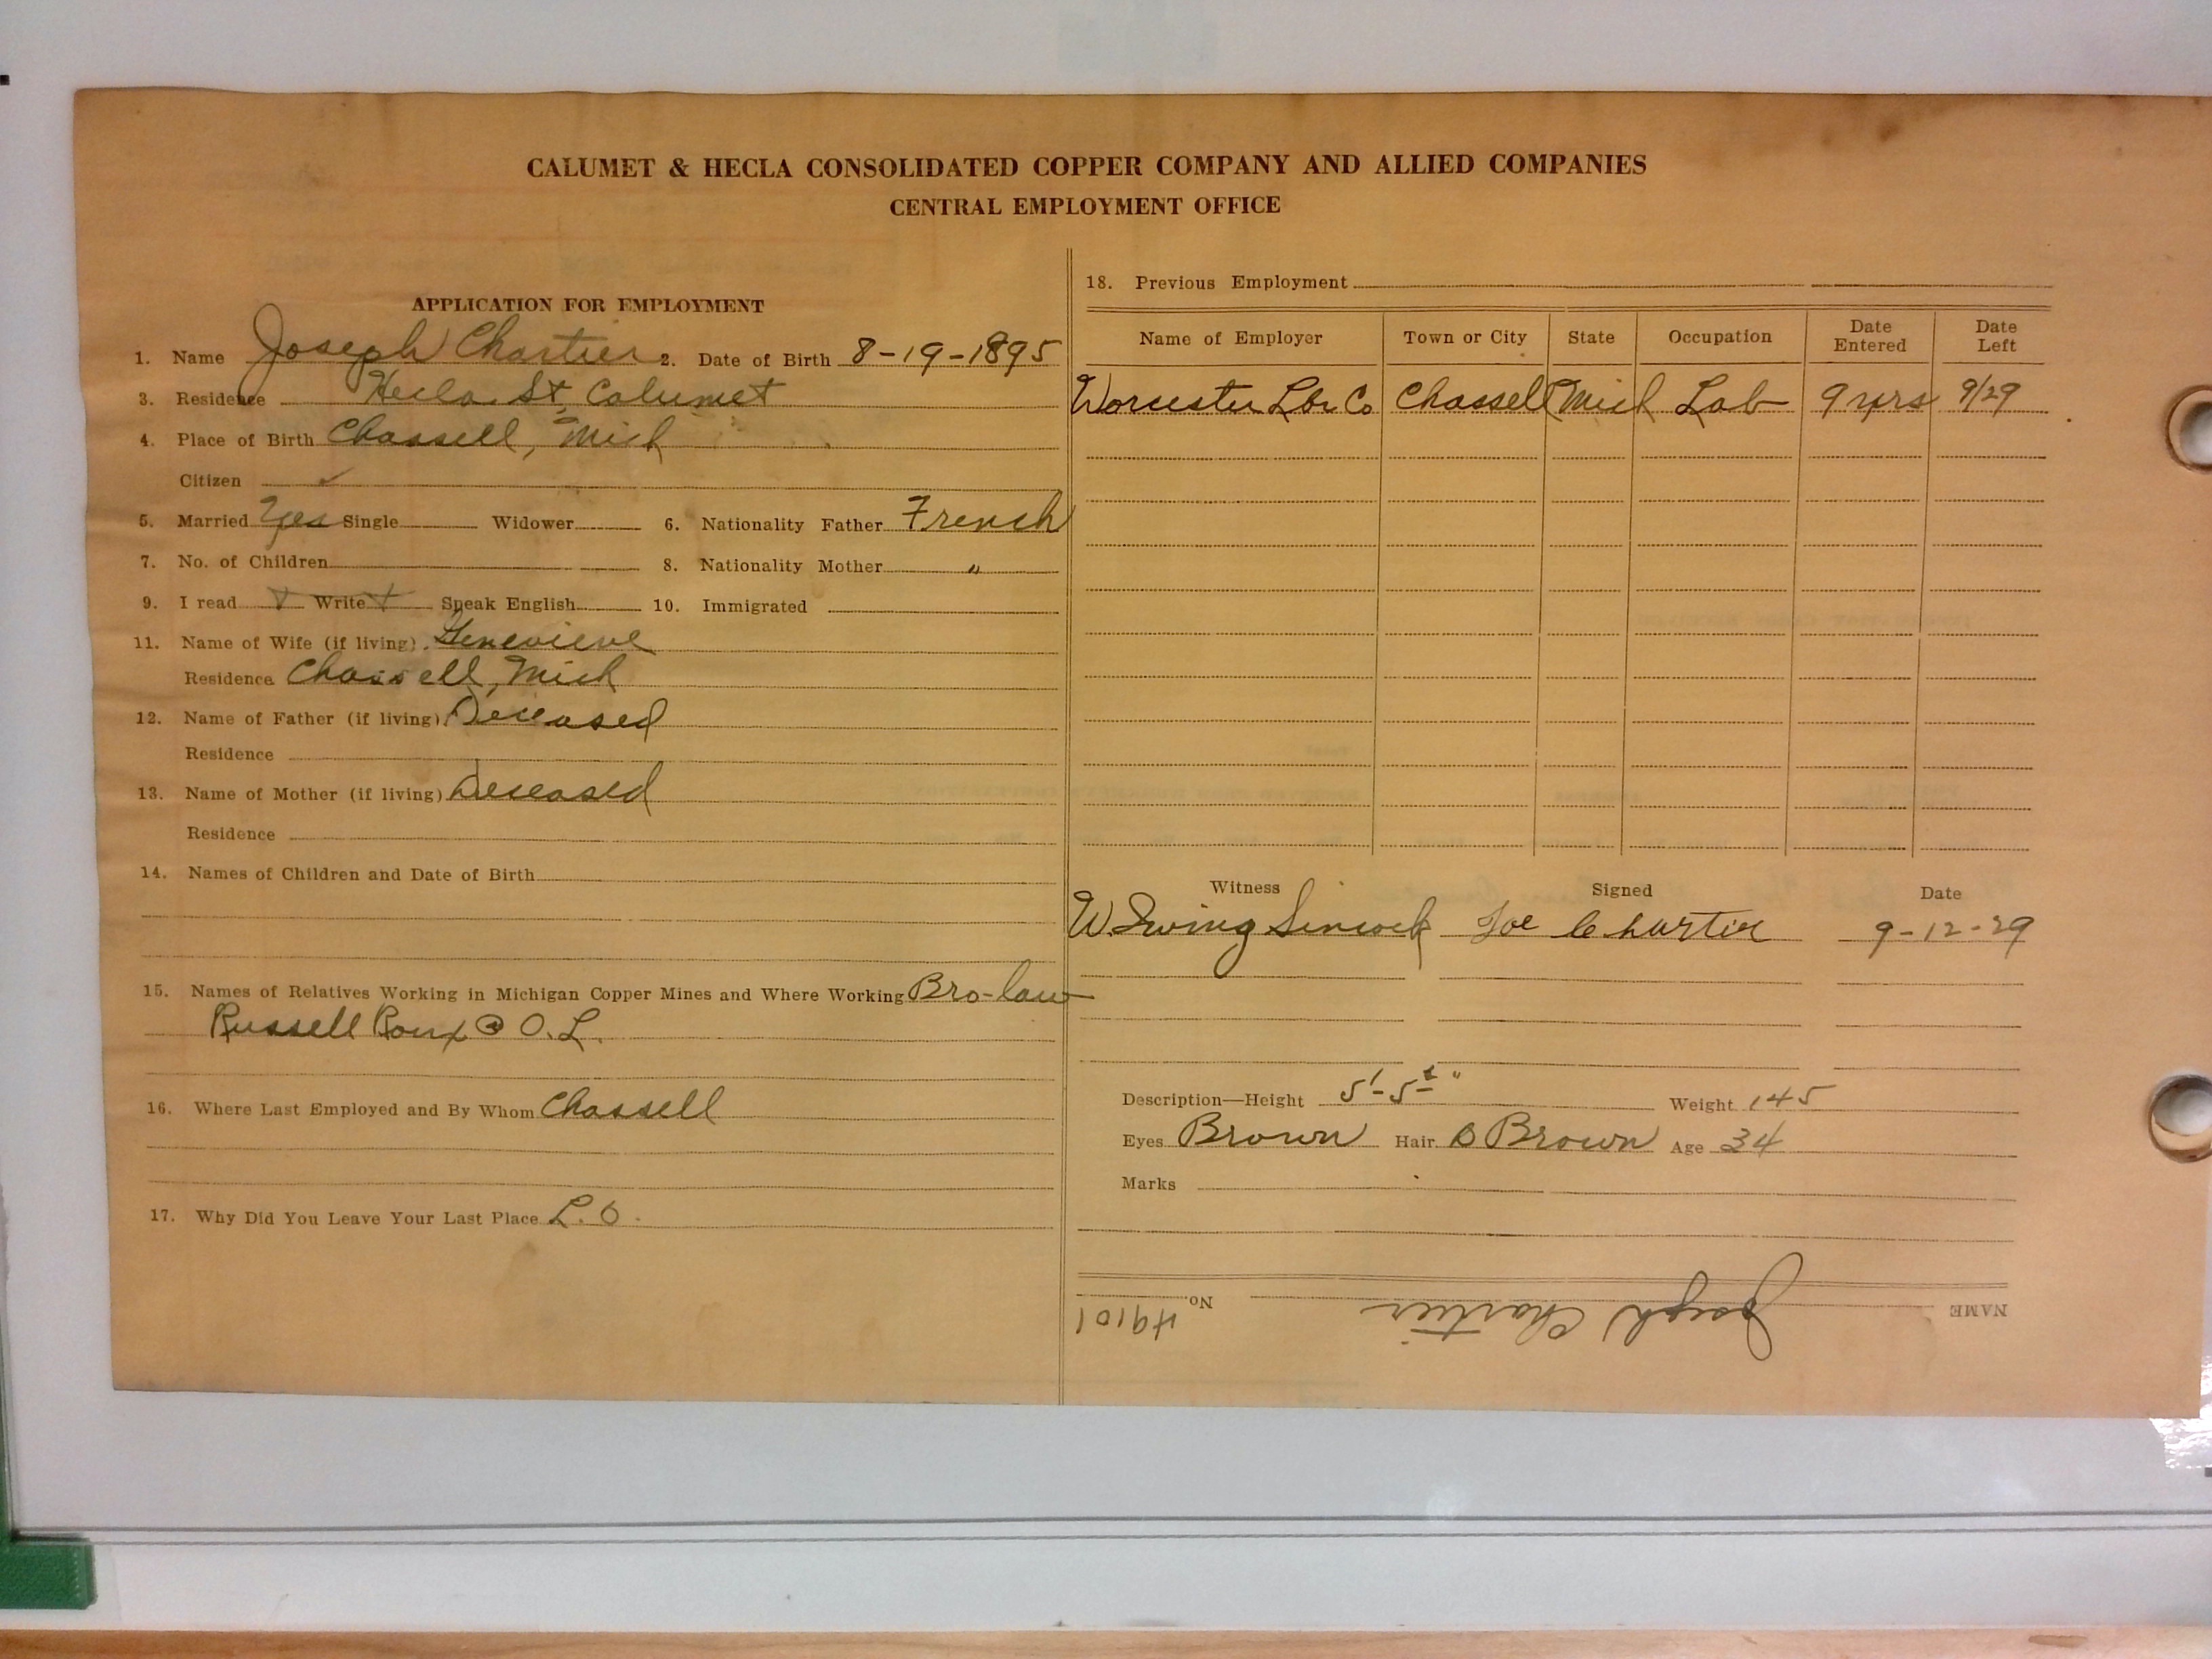 CALUMET & HECLA CONSOLIDATED COPPER COMPANY AND ALLIED COMPANIES
CENTRAL EMPLOYMENT OFFICE
APPLICATION FOR EMPLOYMENT
1. Name Joseph Chartier 2. Date of Birth 8-19-1895
3. Residence Hecla St, Calumet
4. Place of Birth Chassell, Mich
Citizen ✓
5. Married Yes Single Widower 6. Nationality Father French
7. No. of Children 8. Nationality Mother "
9. I read Write Speak English 10. Immigrated
11. Name of Wife (if living) Genevieve
Residence Chassell, Mich
12. Name of Father (if living) Deceased
Residence
13. Name of Mother (if living) Deceased
Residence
14. Names of Children and Date of Birth
15. Names of Relatives Working in Michigan Copper Mines and Where Working Bro-law
Russell Roux @ O.L.
16. Where Last Employed and By Whom Chassell
17. Why Did You Leave Your Last Place L.O.
18. Previous Employment
Name of Employer Town or City State Occupation Date Entered Date Left
Worcester Lbr Co Chassell Mich Lab 9 yrs 9/29
Witness Signed Date
W. Ewing Sincock Joe Chartier 9-12-29
Description—Height 5'-5" Weight 145
Eyes Brown Hair D Brown Age 34
Marks
NAME Joseph Chartier No. 49101